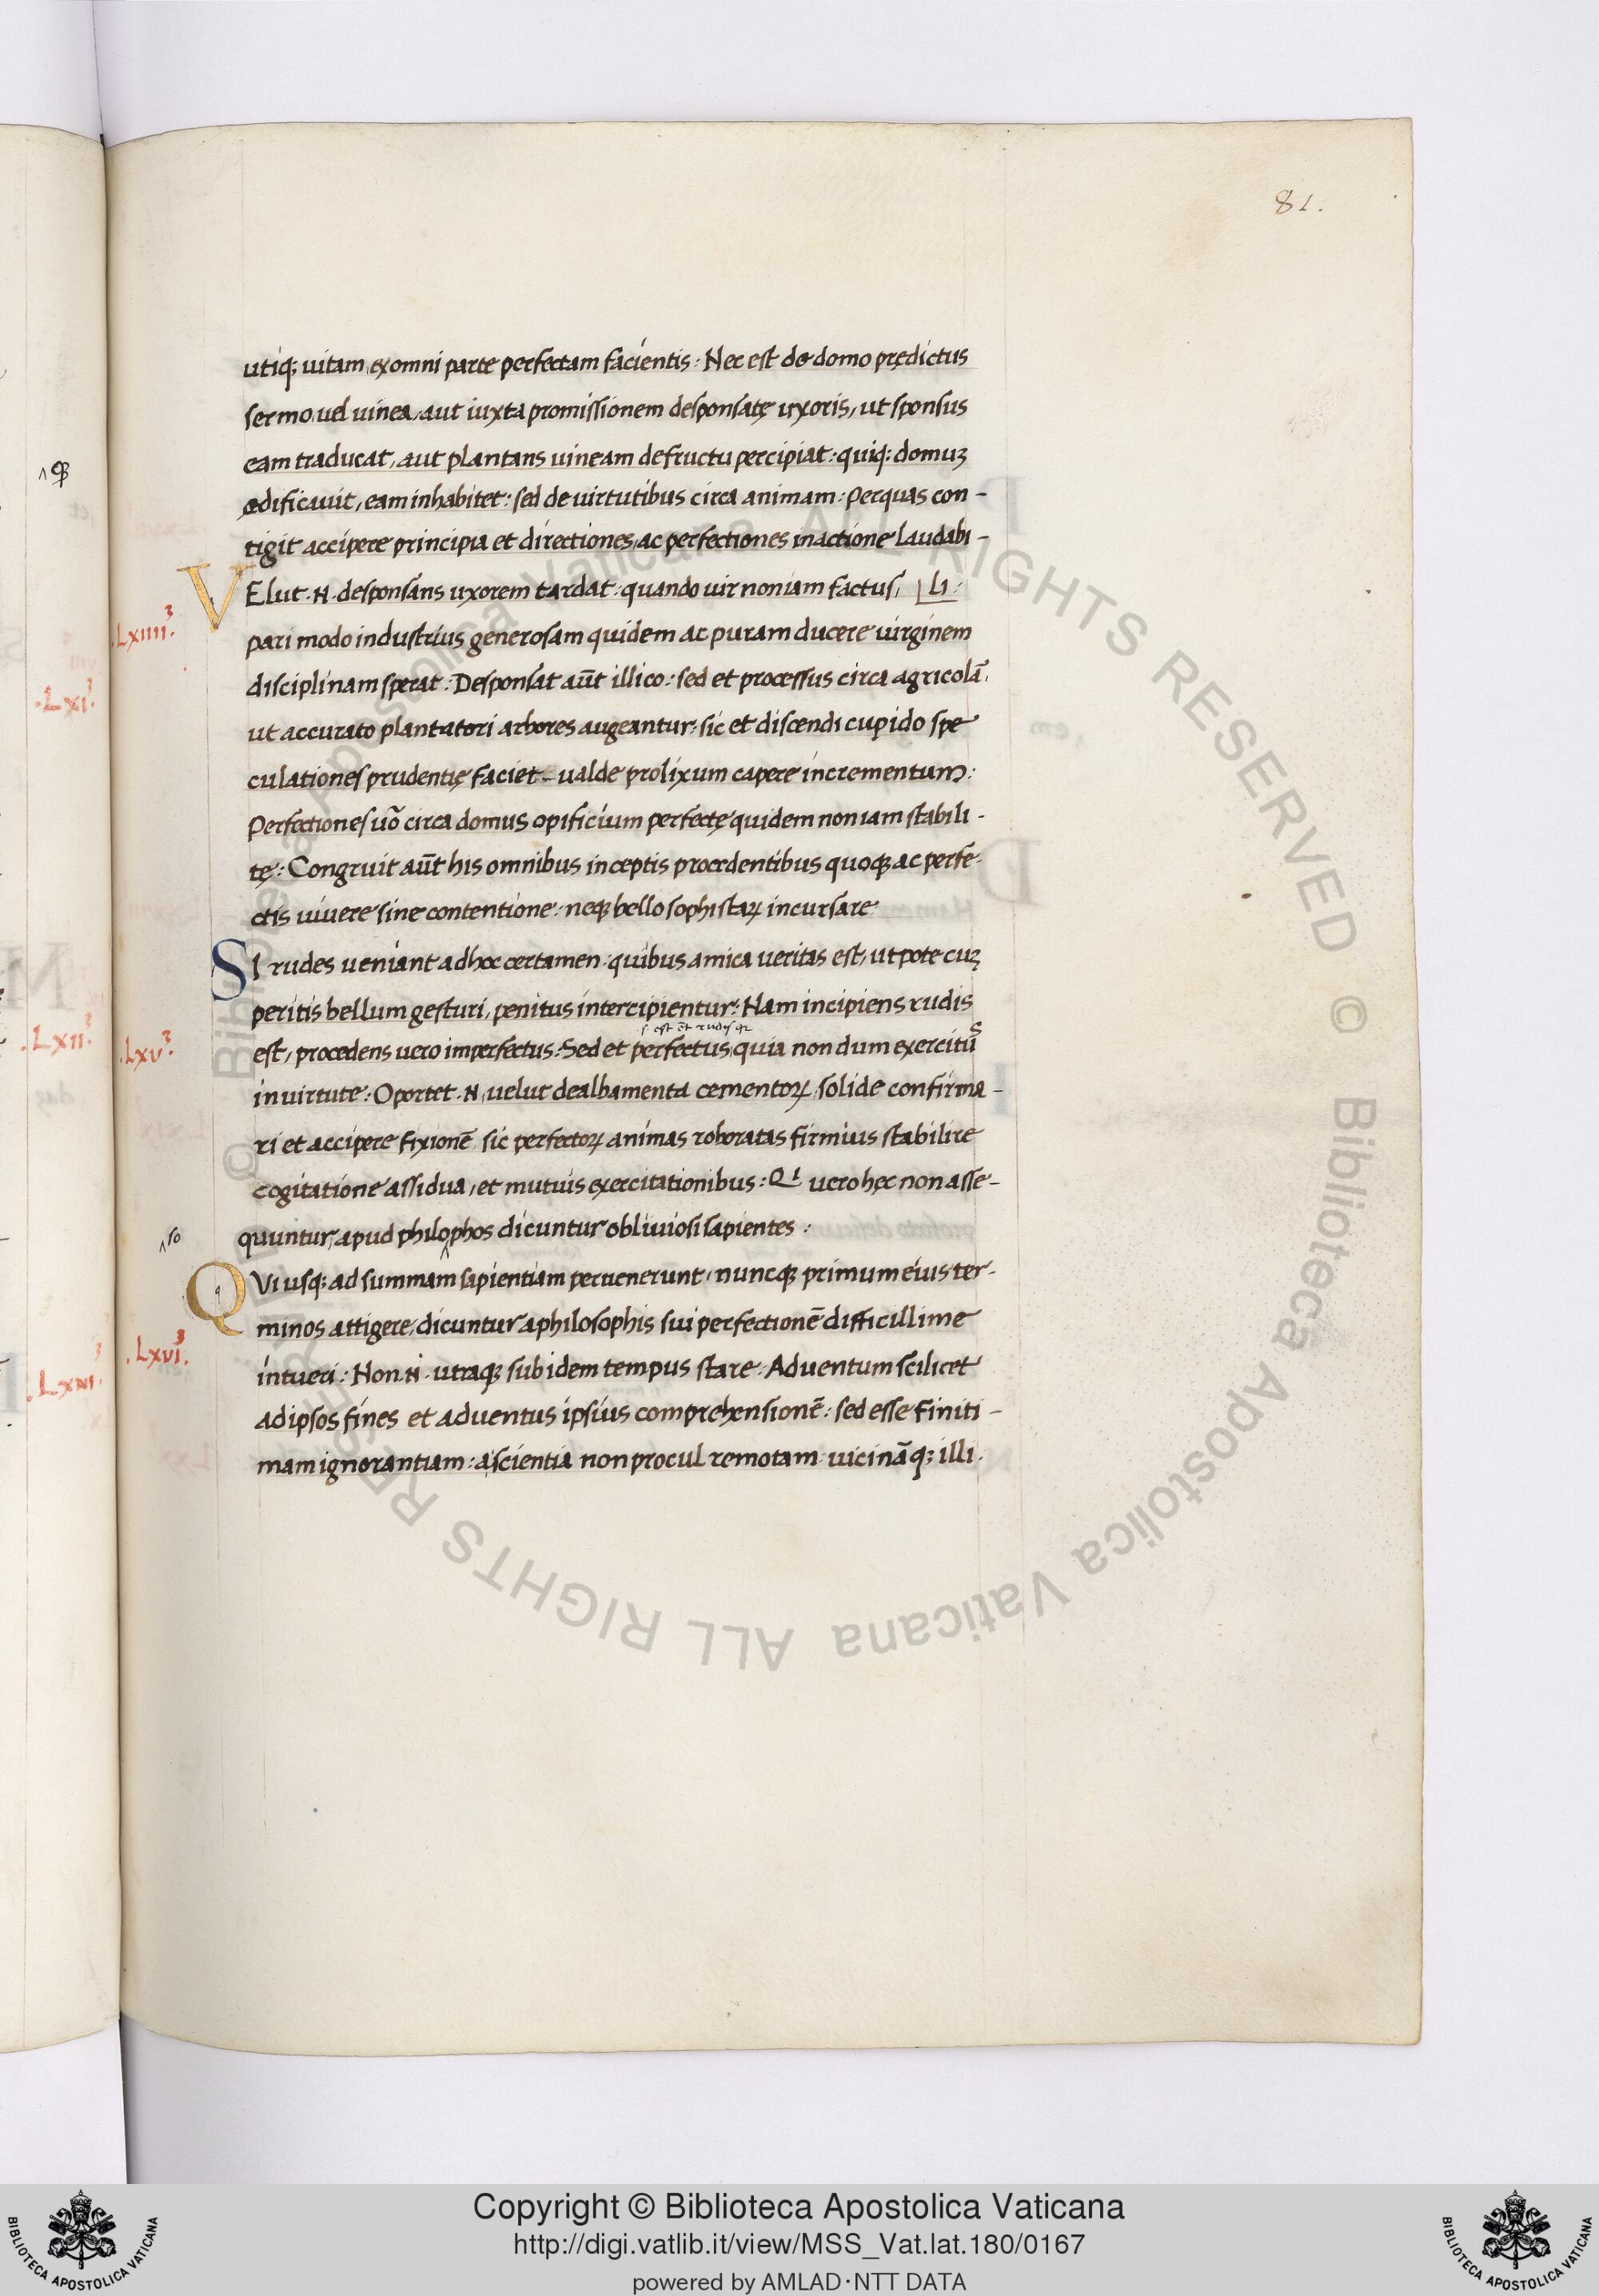 81.
utiq; uitam, ex omni parte perfectam facientis: Nec est de domo prędictus
sermo, uel uinea, aut iuxta promissionem desponsatę uxoris, ut sponsus
eam traducat, aut plantans uineam de fructu percipiat: quiq: domuʒ
ędificauit, eam inhabitet: sed de uirtutibus circa animam: Per quas con-
tigit accipere principia et directiones, ac perfectiones in actione laudabi-
li:
.Lxiiii³.
VElut .N. desponsans uxorem tardat: quando uir non iam factus,
pari modo industrius generosam quidem ac puram ducere uirginem
disciplinam sperat: Desponsat aut̄ illico: sed et processus circa agricolā,
ut accurato plantatori arbores augeantur: sic et discendi cupido spe
culationes prudentię faciet - ualde prolixum capere incrementum:
Perfectiones uō circa domus opificium perfectę quidem non iam stabili-
tę: Congruit aut̄ his omnibus inceptis procedentibus quoq; ac perfe-
ctis uiuere sine contentione: neq; bello sophistaꝝ incursare
.Lxv³.
SI rudes ueniant ad hoc certamen: quibus amica ueritas est, utpote cuʒ
peritis bellum gesturi, penitus intercipientur: Nam incipiens rudis
est, procedens uero imperfectus: Sed et perfectus, quia non dum exercitū
in uirtute: Oportet .N. uelut dealbamenta cementoꝝ, solide confirma-
ri et accipere fixionē sic perfectoꝝ animas roboratas firmius stabilire
cogitatione assidua, et mutuis exercitationibus: Qi uero hęc non asse-
quuntur, apud philo^phos dicuntur obliuiosi sapientes:
^so
QVi usq; ad summam sapientiam peruenerunt, nuncq; primum eius ter-
minos attigere, dicuntur a philosophis sui perfectionē difficillime
.Lxvi³.
intueri: Non .N. utraq; sub idem tempus stare: Aduentum scilicet
ad ipsos fines et aduentus ipsius comprehensionē: sed esse finiti-
mam ignorantiam: a scientia non procul remotam uicināq; illi.
.Lxi³.
.Lxii³.
© Biblioteca Apostolica Vaticana ALL RIGHTS RESERVED © Biblioteca Apostolica Vaticana ALL RIGHTS RESERVED
Copyright © Biblioteca Apostolica Vaticana
http://digi.vatlib.it/view/MSS_Vat.lat.180/0167
powered by AMLAD·NTT DATA
BIBLIOTECA APOSTOLICA VATICANA
BIBLIOTECA APOSTOLICA VATICANA